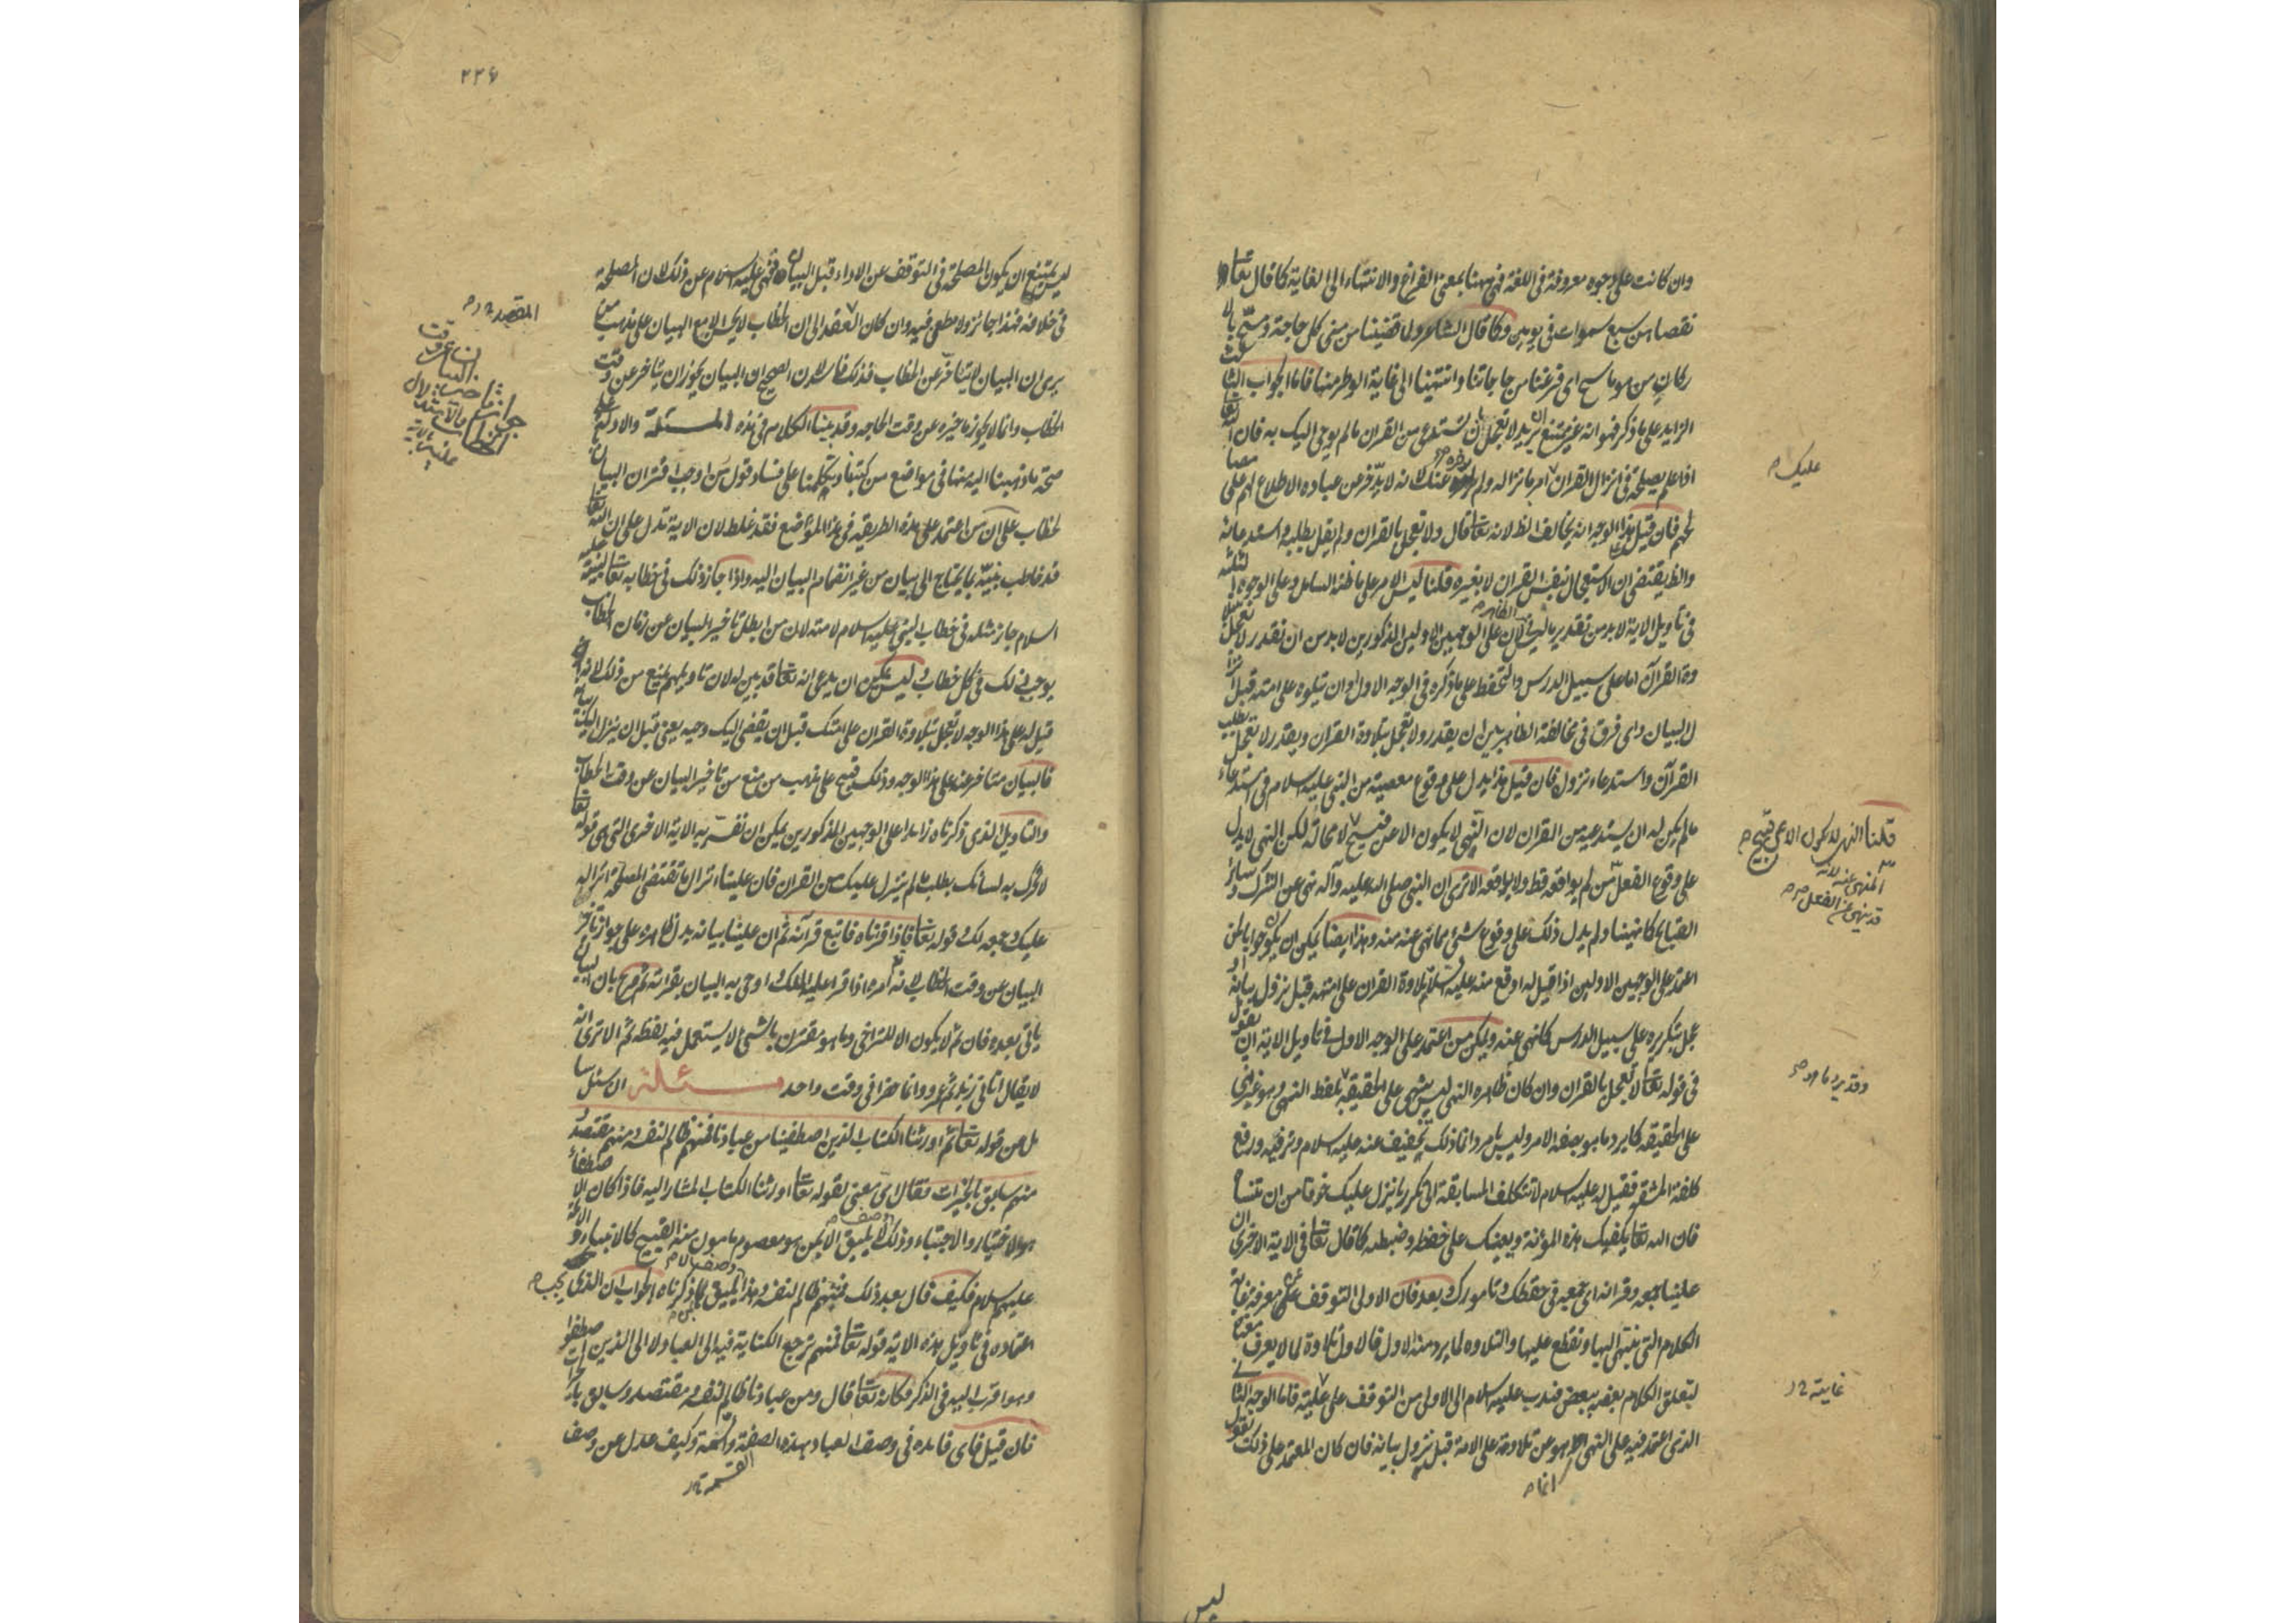 وان كانت على وجوه معروفة فى اللغة فهى ههنا بمعنى الفراغ والانتهاء الى الغاية كما قال تعالى
فقضاهن سبع سموات فى يومين وكما قال الشاعر ولما قضينا من منى كل حاجة ومسّح بالا
ركان من هو ماسح اى فرغنا من حاجاتنا وانتهينا الى غاية الوطر منها فاما الجواب الثالث
الزايد على ما ذكر فهو انه غير ممتنع ان يريد لا تعجل بان تستدعى من القران ما لم يوحى اليك به فان الله تعالى
اذا علم مصلحة فى انزال القران امر بانزاله ولم يؤخره عنك لانه لا يدّخر عن عباده الاطلاع لهم على مصا
لحهم فان قيل هذا الوجه انه يخالف الظ لانه تعالى قال ولا تعجل بالقران ولم يقل بطلبه واستدعائه
والظ يقتضى ان الاستعجال بنفس القران لا بغيره قلنا ليس الامر على ما ظنه السائل وعلى الوجوه الثلثة
فى تأويل الاية لا بد من تقدير ما ليس فى الظاهر لان على الوجهين الاولين المذكورين لا بد من ان نقدر لا تعجل بتلا
وة القرآن اما على سبيل الدرس والتحفظ على ما ذكره فى الوجه الاول او ان تتلوه على امته قبل انزا
ل البيان واى فرق فى مخالفة الظاهر بين ان يقدر ولا تعجل بتلاوة القران ويقدر لا تعجل بطلب
القرآن واستدعاء نزوله فان قيل هذا يدل على وقوع معصية من النبى عليه السلام فى استدعاء
ما لم يكن له ان يستدعيه من القران لان النهى لا يكون الا عن قبيح لا محالة لكن النهى لا يدل
على وقوع الفعل من لم يواقعه قط ولا يواقعه الا ترى ان النبى صلى الله عليه وآله نهى عن الشرك وسائر
القبايح كما نهينا ولم يدل ذلك على وقوع شئ مما نهى عنه منه وهذا ايضا يمكن ان يكون جوابا لمن
اعتمد على الوجهين الاولين اذا قيل له اوقع منه عليه السلام تلاوة القران على امته قبل نزول بيانه او
عجل بتكريره على سبيل الدرس كما نهى عنه ويمكن من اعتمد على الوجه الاول فى تاويل الاية ان يقول
فى قوله تعالى لا تعجل بالقران وان كان ظاهره النهى ليس بنهى على الحقيقة
على الحقيقه كما يرد ما هو بصفه الامر وليس بامر وانما ذلك تخفيف عنه عليه السلام وترفيه ورفع
كلفة المشقه فقيل له عليه السلام لا تتكلف المسابقة الى تكرير ما ينزل عليك خوفا من ان تنساه
فان الله تعالى يكفيك هذه المؤنة ويعينك على حفظه وضبطه كما قال تعالى فى الاية الاخرى ان
علينا جمعه وقرانه اى جمعه فى حفظك وتامورك وبعد فان الاولى التوقف على معرفة غاية
الكلام التى ينتهى اليها ويقطع عليها والتلاوه لما يرد منه الاول فالاول تلاوة لما لا يعرف معناه
لتعلق الكلام بعضه ببعض فندب عليه السلام الى الاولى من التوقف على غايته فاما الوجه الثانى
الذى اعتمد فيه على النهى هو عن تلاوته على الامة قبل نزول بيانه فان كان المعتمد على ذلك يقول
عليك
قلنا النهى لا يكون الا عن قبيح
المنهى عنه لانه
قد ينهى عن الفعل
وقد يرد ما
غايته
انما
ليس
٢٢٦
ليس يمتنع ان يكون المصلحة فى التوقف عن الاداء قبل البيان فنهى عليه السلام عن ذلك لان المصلحة
فى خلافه فهذا جائز ولا مطعن فيه وان كان القصد الى ان الخطاب لا يحسن الا مع البيان على مذهب من
يرى ان البيان لا يتأخر عن الخطاب فذلك فاسد لان الصحيح ان البيان يجوز ان يتاخر عن وقت
الخطاب وانما لا يجوز تأخيره عن وقت الحاجه وقد بينا الكلام فى هذه المسئلة والادلة على
صحة ما ذهبنا اليه منها فى مواضع من كتبنا وتكلمنا على فساد قول من اوجب اقتران البيان بالـ
خطاب على ان من اعتمد على هذه الطريقه فى هذا الموضع فقد غلط لان الاية تدل على ان الله تعالى
قد خاطب نبيه بما يحتاج الى بيان من غير انضمام البيان اليه واذا جاز ذلك فى خطابه تعالى لنبيه عليه
السلام جاز مثله فى خطاب النبى عليه السلام لامته لان من ابطل تاخير البيان عن زمان الخطاب
يوجب ذلك فى كل خطاب وليس يمكن ان يدعى انه تعالى قد بين له لان تاويلهم يمنع من ذلك لانه
قيل له على هذا الوجه لا تعجل بتلاوة القران على امتك قبل ان يقضى اليك وحيه يعنى قبل ان ينزل اليك بيانه
فالبيان متاخر عنه على هذا الوجه وذلك قبيح على مذهب من منع من تاخير البيان عن وقت الخطاب
والتاويل الذى ذكرناه زايدا على الوجهين المذكورين يمكن ان نفسّر به الاية الاخرى التى هى قوله تعالى
لا تحرك به لسانك بطلب ما لم ينزل عليك من القران فان علينا انزال ما تقتضى المصلحة انزاله
عليك وجمعه لك وقوله تعالى فاذا قرأناه فاتبع قرآنه ثم ان علينا بيانه يدل ظاهره على جواز تاخير
البيان عن وقت الخطاب لانه امره اذا قرأ عليه الملك واوحى به اليه ان يقرأ به ثم صرح بان البيان
ياتى بعده فان ثم لا يكون الا للتراخى وما هو مقترن بالشئ لا يستعمل فيه لفظه ثم الا ترى انه
لا يقال اتانى زيد ثم عمرو وانما حضرا فى وقت واحد مسئلة ان سئل سا
ئل عن قوله تعالى ثم اورثنا الكتاب الذين اصطفينا من عبادنا فمنهم ظالم لنفسه ومنهم مقتصد
ومنهم سابق بالخيرات فقال اى معنى لقوله تعالى اورثنا الكتاب المشار اليه فاذا كان الاصطفاء
هو الاختيار والاجتباء وذلك لا يليق الا بمن هو معصوم مامون منه القبيح كالانبياء والائمة
عليهم السلام فكيف قال بعد ذلك فمنهم ظالم لنفسه وهذا وصف لا يليق بمن ذكرناه الجواب ان الذى يجب
اعتماده فى تاويل هذه الاية قوله تعالى فمنهم ترجع الكناية فيه الى العباد ولا الى الذين اصطفوا
وهو اقرب اليه فى الذكر فكانه تعالى قال ومن عبادنا ظالم لنفسه ومقتصد وسابق بالخيرات
فان قيل فاى فائده فى وصف العباد بهذه الصفة والقسمة وكيف عدل عن وصف
القصد
القسمة